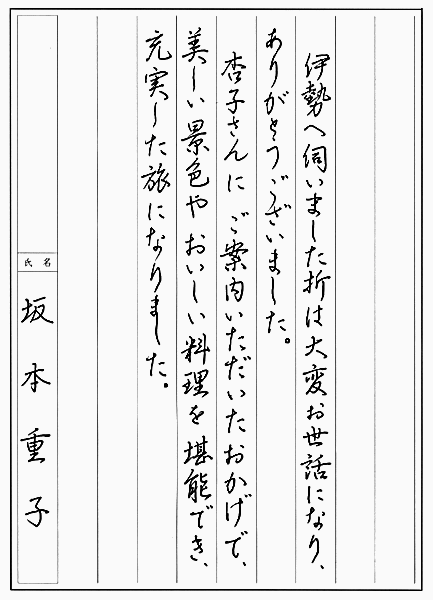 伊勢へ伺いました折は大変お世話になり、
ありがとうございました。
杏子さんにご案内いただいたおかげで、
美しい景色やおいしい料理を堪能でき、
充実した旅になりました。
氏名
坂本重子